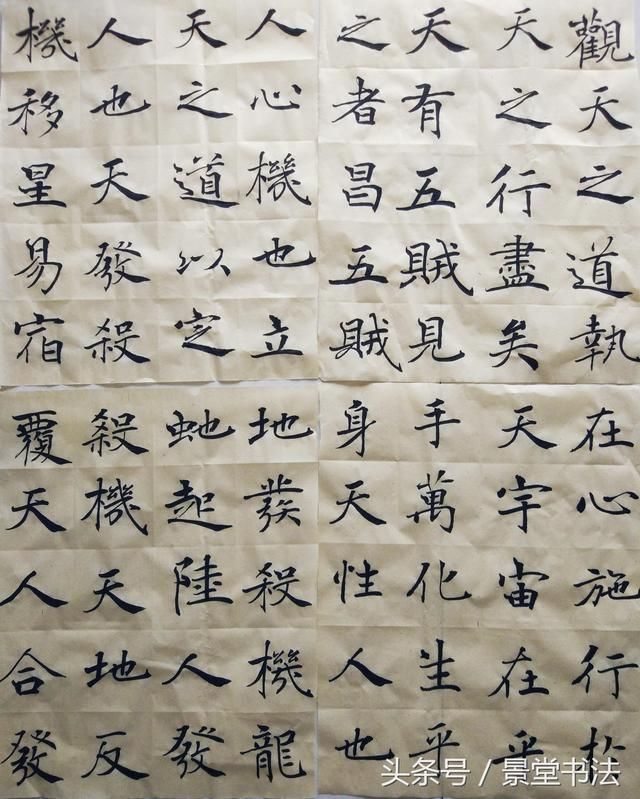 觀天之道執
天之行盡矣
天有五賊見
之者昌五賊
在心施行扵
天宇宙在乎
手萬化生乎
身天性人也
人心機也立
天之道以定
人也天發殺
機移星易宿
地發殺機龍
虵起陸人發
殺機天地反
覆天人合發
头条号 / 景堂书法